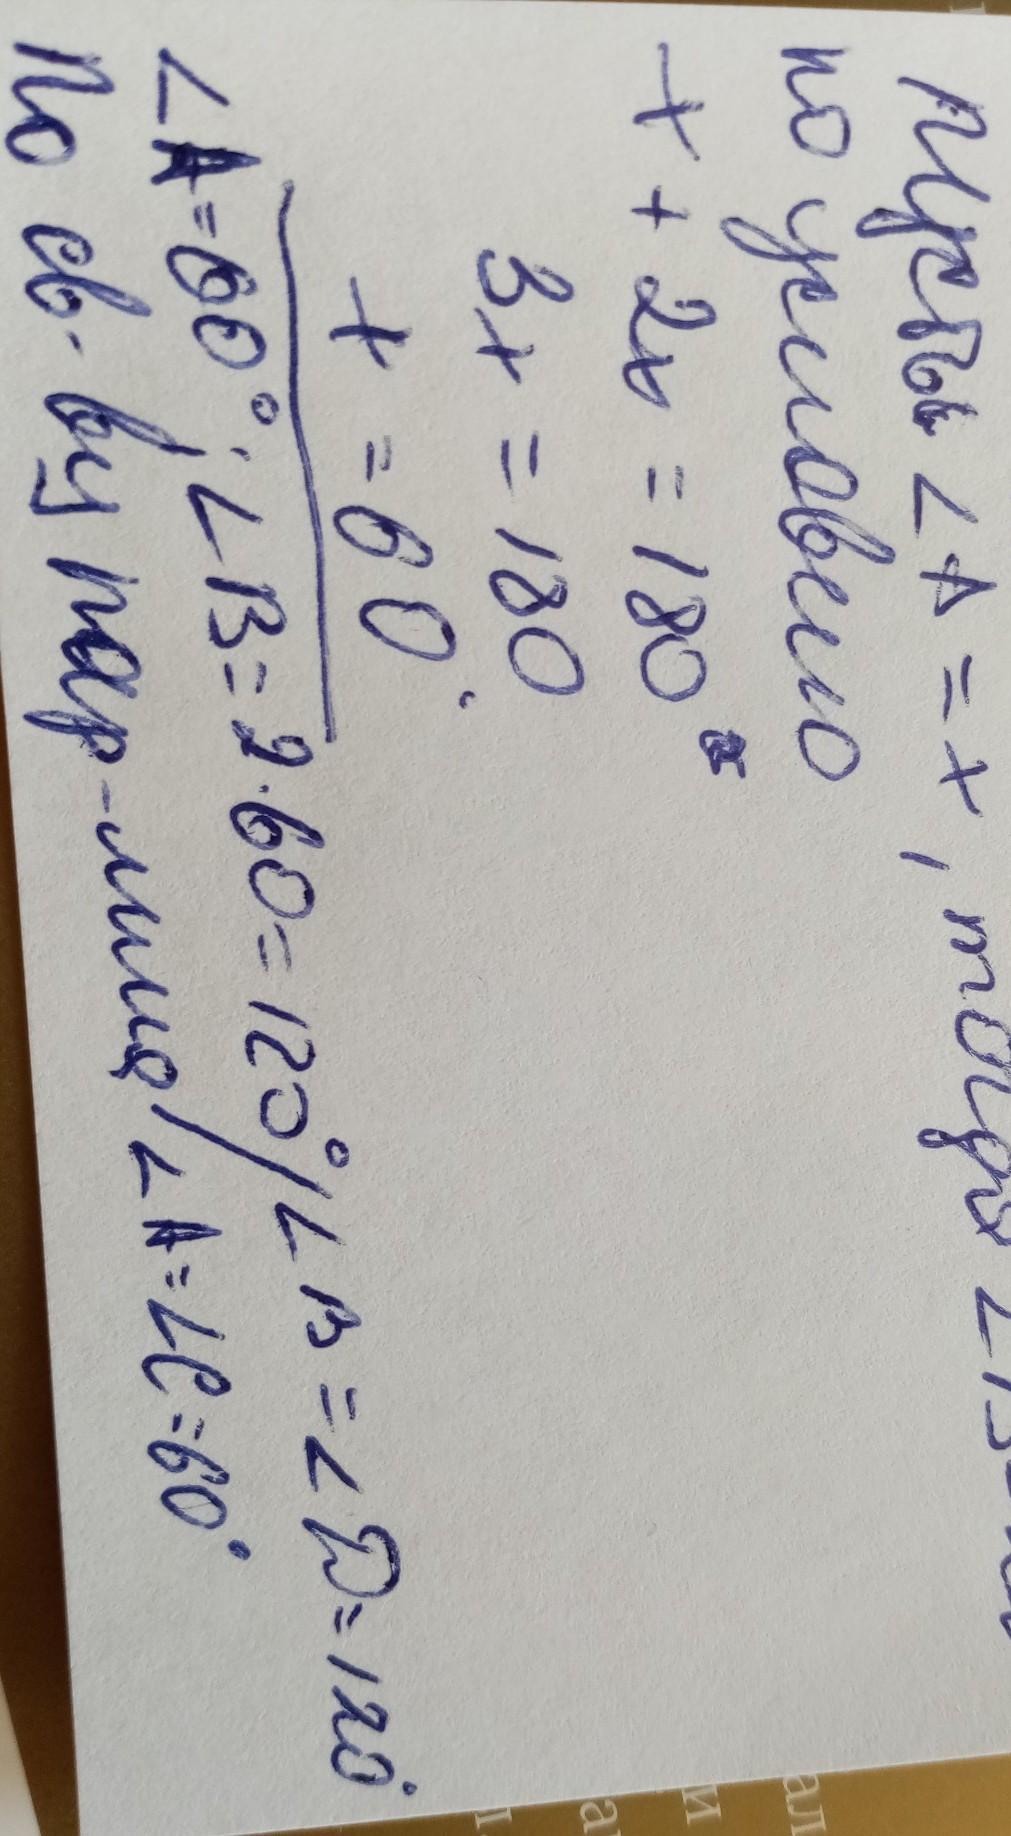 Пусть ∠A = x, тогда ∠B
по условию
x + 2x = 180°
3x = 180
x = 60°
∠A = 60°; ∠B = 2·60 = 120°/∠B = ∠D = 120°
По св-ву пар-мма/∠A = ∠C = 60°